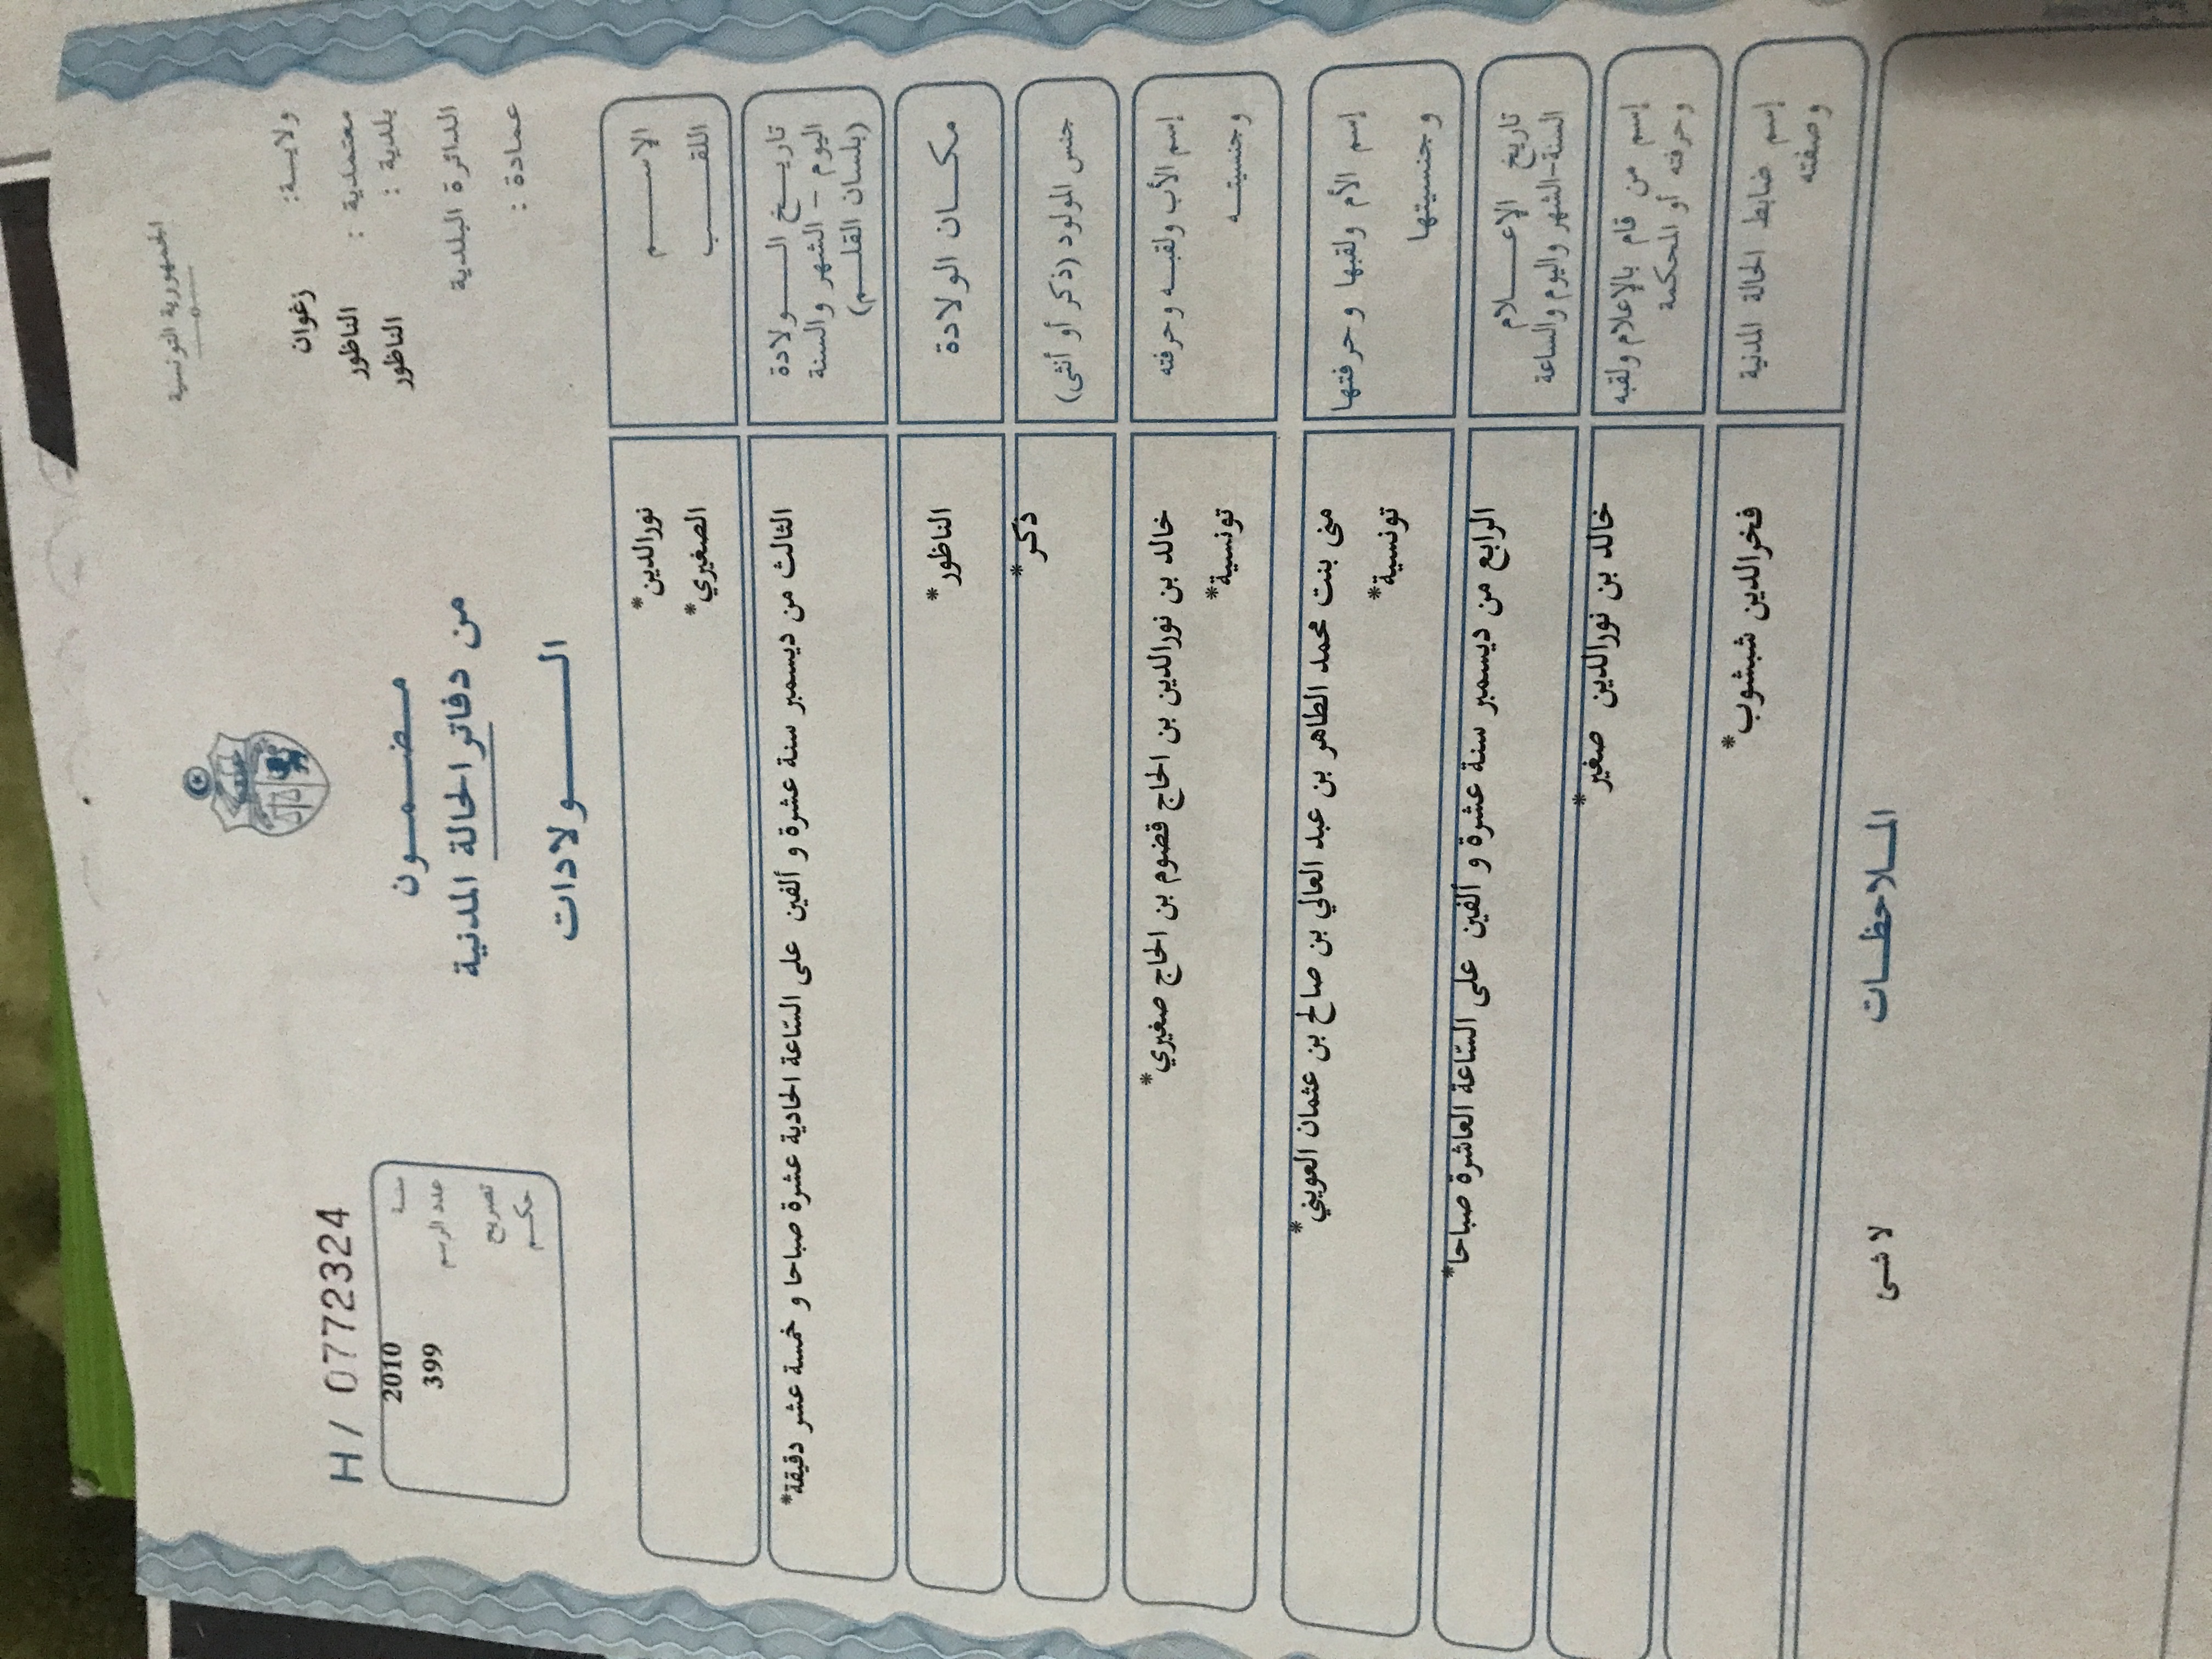 الجمهورية التونسية
ولاية: زغوان
معتمدية : الناظور
بلدية : الناظور
الدائرة البلدية
عمادة :
مضمون
من دفاتر الحالة المدنية
الولادات
H / 0772324
سنة 2010
عدد الرسم 399
تصريح
حكم
الإسم نورالدين*
اللقب الصغيري*
تاريخ الولادة
اليوم - الشهر والسنة
(بلسان القلم)
الثالث من ديسمبر سنة عشرة و ألفين على السّاعة الحادية عشرة صباحا و خمسة عشر دقيقة*
مكان الولادة الناظور*
جنس المولود (ذكر أو أنثى) ذكر*
إسم الأب ولقبه وحرفته خالد بن نورالدين بن الحاج قضوم بن الحاج صغيري*
وجنسيته تونسية*
إسم الأم ولقبها وحرفتها منى بنت محمد الطاهر بن عبد العالي بن صالح بن عثمان العويني*
وجنسيتها تونسية*
تاريخ الإعلام
السنة-الشهر واليوم والساعة
الرابع من ديسمبر سنة عشرة و ألفين على السّاعة العاشرة صباحا*
إسم من قام بالإعلام ولقبه
وحرفته أو المحكمة
خالد بن نورالدين صغير*
إسم ضابط الحالة المدنية
وصفته
فخرالدين شبشوب*
الملاحظات
لا شى